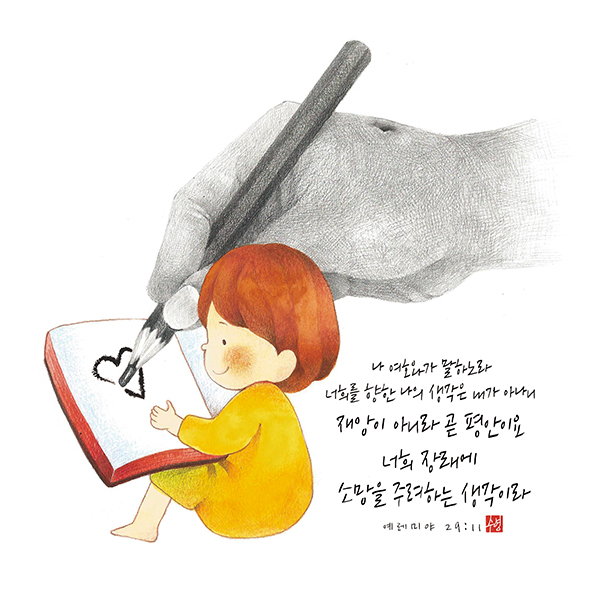 나 여호와가 말하노라
너희를 향한 나의 생각은 내가 아나니
재앙이 아니라 곧 평안이요
너희 장래에
소망을 주려하는 생각이라
예레미야 29:11 수영